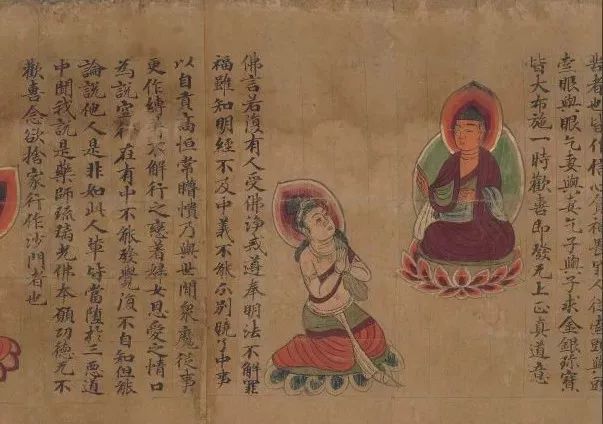 者也皆作信心貪福畏罪人從索頭與頭
索眼與眼乞妻與妻乞子與子求金銀珎寶
皆大布施一時歡喜即發无上正真道意
佛言若復有人受佛淨戒遵奉明法不解罪
福雖知明經不及中義不能分別曉了中事
以自貢高恒常瞋憒乃與世間衆魔從事
更作縛著不解行之戀著婦女恩愛之情口
為說空行在有中不能發覺復不自知但能
論說他人是非如此人輩皆當墮於三惡道
中聞我說是藥師琉璃光佛本願功德无不
歡喜念欲捨家行作沙門者也